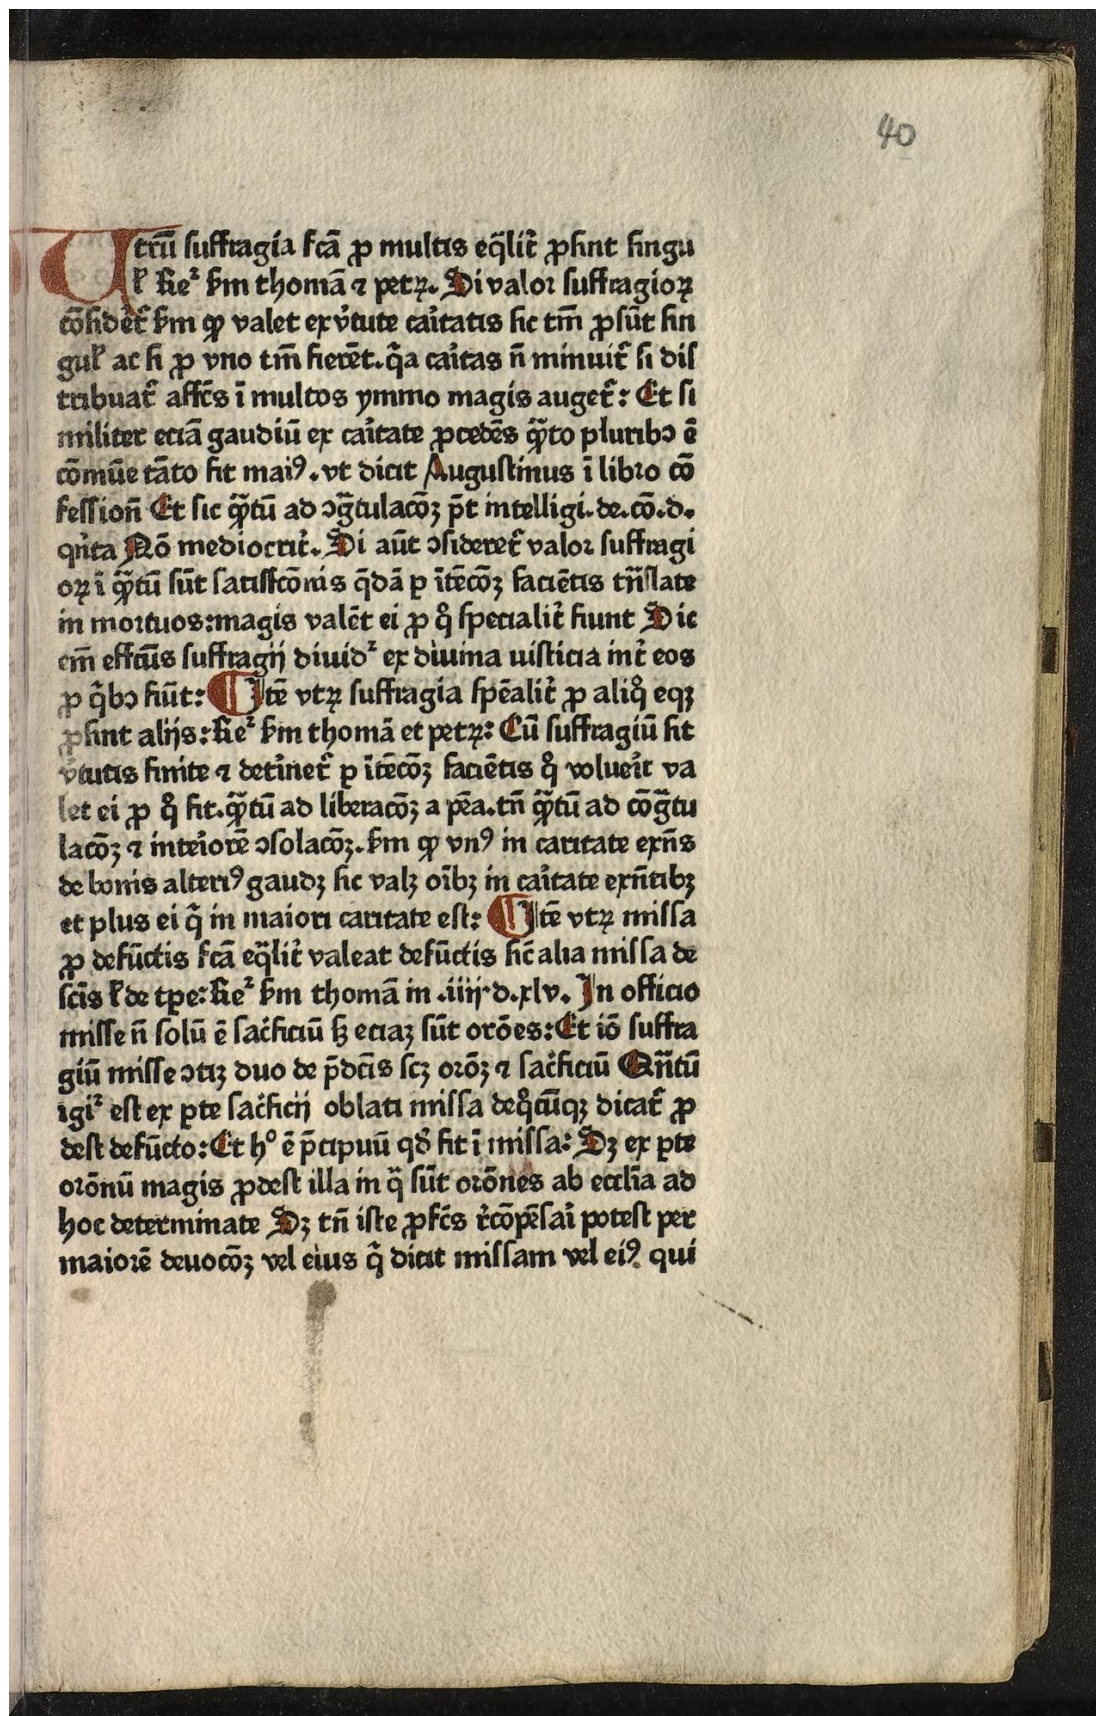 40
Utrū suffragia fcā ꝓ multis eq̄lit᷑ ꝓsint singu
ł Rᷤe² ẜm thomā ⁊ petꝝ. Si valor suffragioꝝ
cōsid᷑et᷑ ẜm ꝙ valet ex v᷑tute cai᷑tatis sic tm̄ ꝓsūt sin
guł ac si ꝓ vno tm̄ fierēt. q̄a cai᷑tas n̄ minuit᷑ si dis
tribuat᷑ affc̄s ī multos ymmo magis auget᷑: Et si
militer eciā gaudiū ex cai᷑tate ꝓcedēs qᷓ̄to pluribↄ ē
cōmūe tāto fit maiꝰ. vt dicit Augustinus ī libro cō
fession̄ Et sic qᷓ̄tū ad ↄgᷓ̄tulacōꝫ p̄t intelligi. de. cō. d.
qn᷑ta Nō mediocrit᷑. Si aūt ↄsideret᷑ valor suffragi
oꝝ ī qᷓ̄tū sūt satisfcōnis q̄dā ꝑ ītēcōꝫ faciētis tn̄slate
in mortuos: magis valēt ei ꝓ qͦ specialit᷑ fiunt Sic
em̄ effcūs suffragij diuid² ex diuina iusticia int᷑ eos
ꝓ q̄bↄ fiūt: Itē vtꝝ suffragia spēalit᷑ ꝓ aliqͦ eqꝫ
ꝓsint alijs: Rᷤe² ẜm thomā et petꝝ: Cū suffragiū fit
v᷑tutis finite ⁊ det᷑inet᷑ ꝑ ītēcōꝫ faciētis qͦ voluei᷑t va
let ei ꝓ qͦ fit. qᷓ̄tū ad liberacōꝫ a pēa. tn̄ qᷓ̄tū ad cōgᷓ̄tu
lacōꝫ ⁊ intei᷑orē ↄsolacōꝫ. ẜm ꝙ vnꝰ in caritate exn̄s
de bonis alteriꝰ gaudꝫ sic valꝫ oībꝫ in cai᷑tate exn̄tibꝫ
et plus ei q̄ in maiori caritate est: Itē vtꝝ missa
ꝓ defūctis fcā eq̄lit᷑ valeat defūctis sic̄ alia missa de
scīs ł de tꝑe: Rᷤe² ẜm thomā in .iiij. d. xlv. In officio
misse n̄ solū ē sac᷑ficiū ẜꝫ eciaꝫ sūt orōes: Et iō suffra
giū misse ↄtiꝫ duo de p̄dc̄is scꝫ orōꝫ ⁊ sac᷑ficiū Qn̄tū
igi² est ex ꝑte sac᷑ficij oblati missa deqͦcūqꝫ dicat᷑ ꝓ
dest defūcto: Et hͦ ē p̄cipuū qđ fit ī missa: Sꝫ ex ꝑte
orōnū magis ꝓdest illa in q̄ sūt orōnes ab eccl̄ia ad
hoc determinate Sꝫ tn̄ iste ꝓfc̄s r᷑cōpēsai᷑ potest per
maiorē deuocōꝫ vel eius q̄ dicit missam vel eiꝰ qui